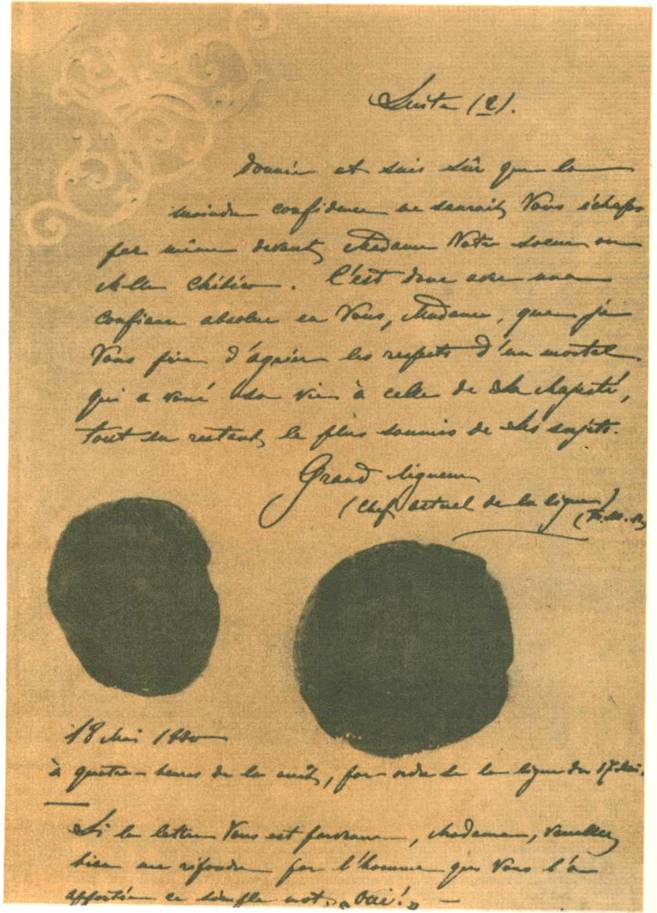 Suite (2).
donnée et suis sûr que la
moindre confidence ne saurait Vous échapper
par même devant Madame Votre soeur ou
M-lle Chébéco. C'est donc avec une
confiance absolue en Vous, Madame, que je
Vous prie d'agréer les respects d'un mortel
qui a voué sa vie à celle de Sa Majesté,
tout en restant le plus soumis de Ses sujets.
Grand ligueur
(chef actuel de la ligue)
18 Mai 1880
à quatre heures de la nuit, par ordre de la ligue du 17 Mai.
Si la lettre Vous est parvenue, Madame, veuillez
bien me répondre par l'homme qui Vous l'a
apportée ce simple mot: „Oui!„ —